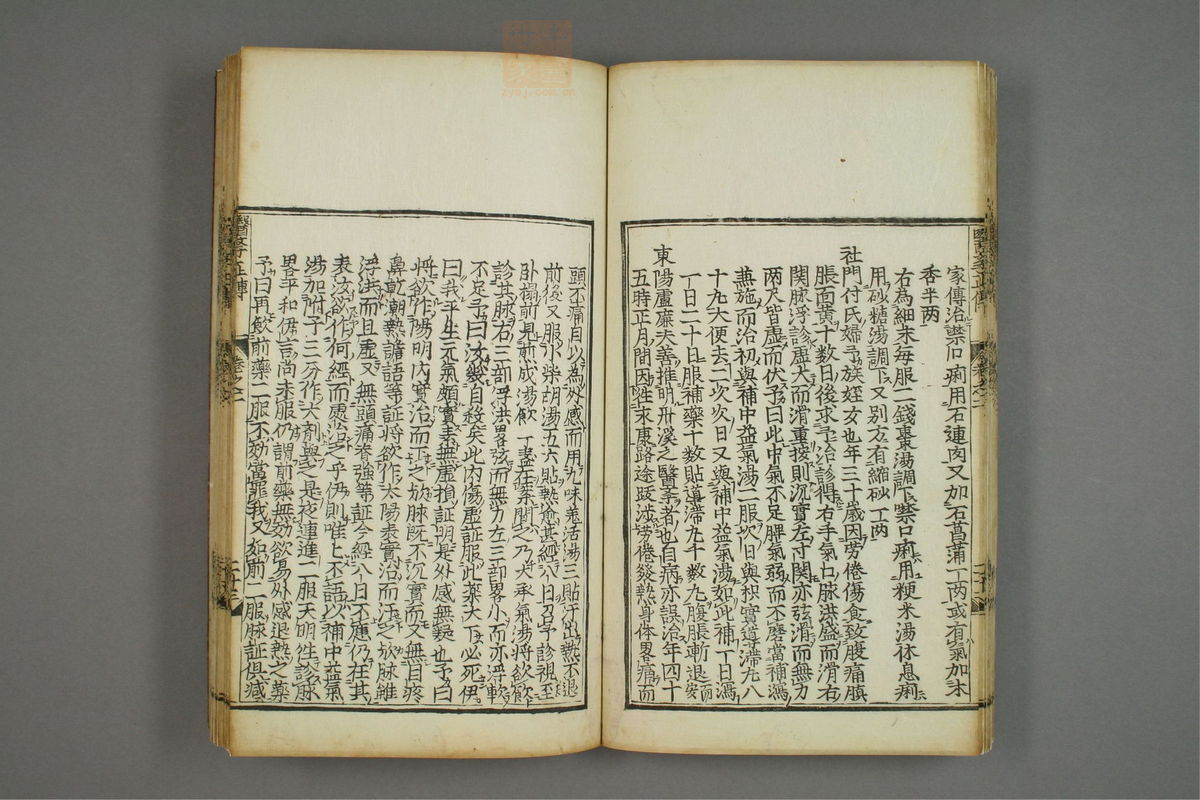 家傳治噤口痢用石蓮肉又加石菖蒲一两或有氣加末
香半两
右為細末每服二錢棗湯調下噤口痢用粳米湯休息痢
用砂糖湯調下又別方有縮砂一两
社門付氏婦予族姪女也年三十歲因勞倦傷食致腹痛䐜
脹面黄十数日後求予治診得右手氣口脉洪盛而滑右
関脉浮診虚大而滑重按則沉實左寸関亦弦滑而無力
两尺皆虚而伏予曰此中氣不足脾氣弱而不磨當補瀉
兼施而治初與補中益氣湯二服次日與枳實導滞丸八
十丸大便去二次次日又與補中益氣湯如此補一日瀉
一日二十日服補藥十数貼導滞丸千数丸腹脹漸退而安
東陽盧廉夫善推明丹溪之醫學者也自病亦誤治年四十
五時正月間因徃永康路途跋涉勞倦發熱身体畧痛而
頭不痛自以為外感而用九味羗活湯三貼汗出熱不退
前後又服小柴胡湯五六貼熱愈甚經八日召予診視至
卧榻前見前成湯飲一盞在案問之乃大承氣湯將欲飲
診其脉右三部浮洪畧弦而無力左三部畧小而亦浮軟
不足予曰汝幾自殺矣此内傷虚証服此薬大下必死伊
曰我平生元氣頗實素無虚損証明是外感無疑也予曰
將欲作陽明内實治而下之欤脉既不沉實而又無目疼
鼻乾潮熱譫語等証將欲作太陽表實治而汗之欤脉雖
浮洪而且虚又無頭痛脊強等証今經八日不應仍在其
表汝欲作何經而處治之乎伊則唯唯不語以補中益氣
湯加附子三分作大剤與之是夜連進二服天明徃診脉
畧平和伊言尚未服仍謂前藥無効欲易外感退熱之薬
予曰再飲前藥二服不効當罪我又如前二服脉証俱减
醫學正傳
卷之二